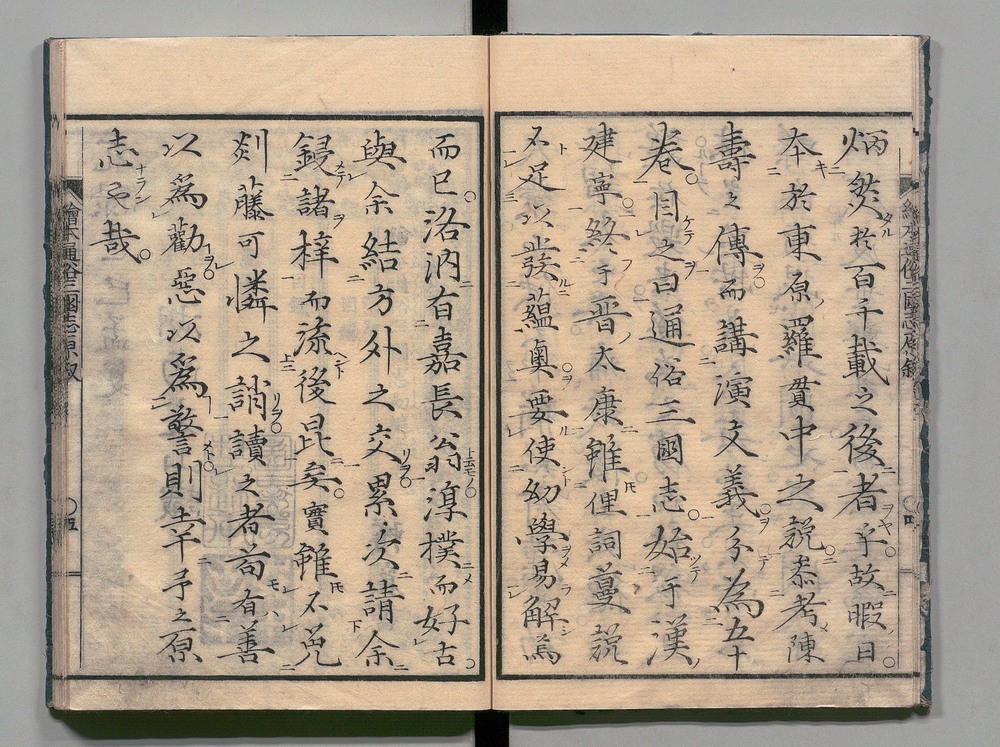 炳然於百千載之後者乎故暇日
本於東原羅貫中之説叅考陳
壽之傳而講演文義分為五十
卷目之曰通俗三國志始于漢
建寧終于晋太康雖俚詞蔓説
不足以發蘊奥要使幼學易解焉
而已洛汭有嘉長翁淳樸而好古
與余結方外之交累次請余
鋟諸梓而流後昆矣實雖不免
剡藤可憐之誚讀之者苟有善
以為勸惡以為警則幸于予之原
志也哉